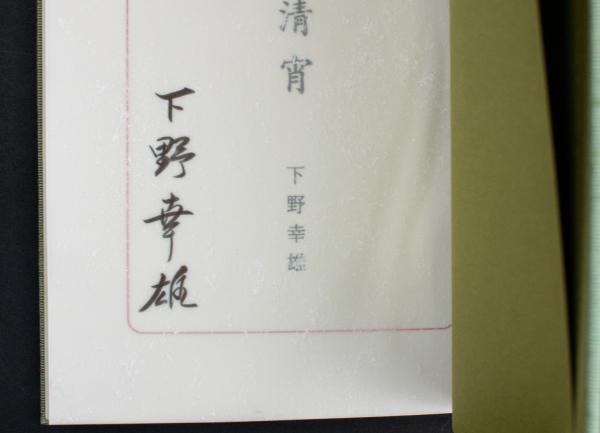 清宵
下野幸雄
下野幸雄